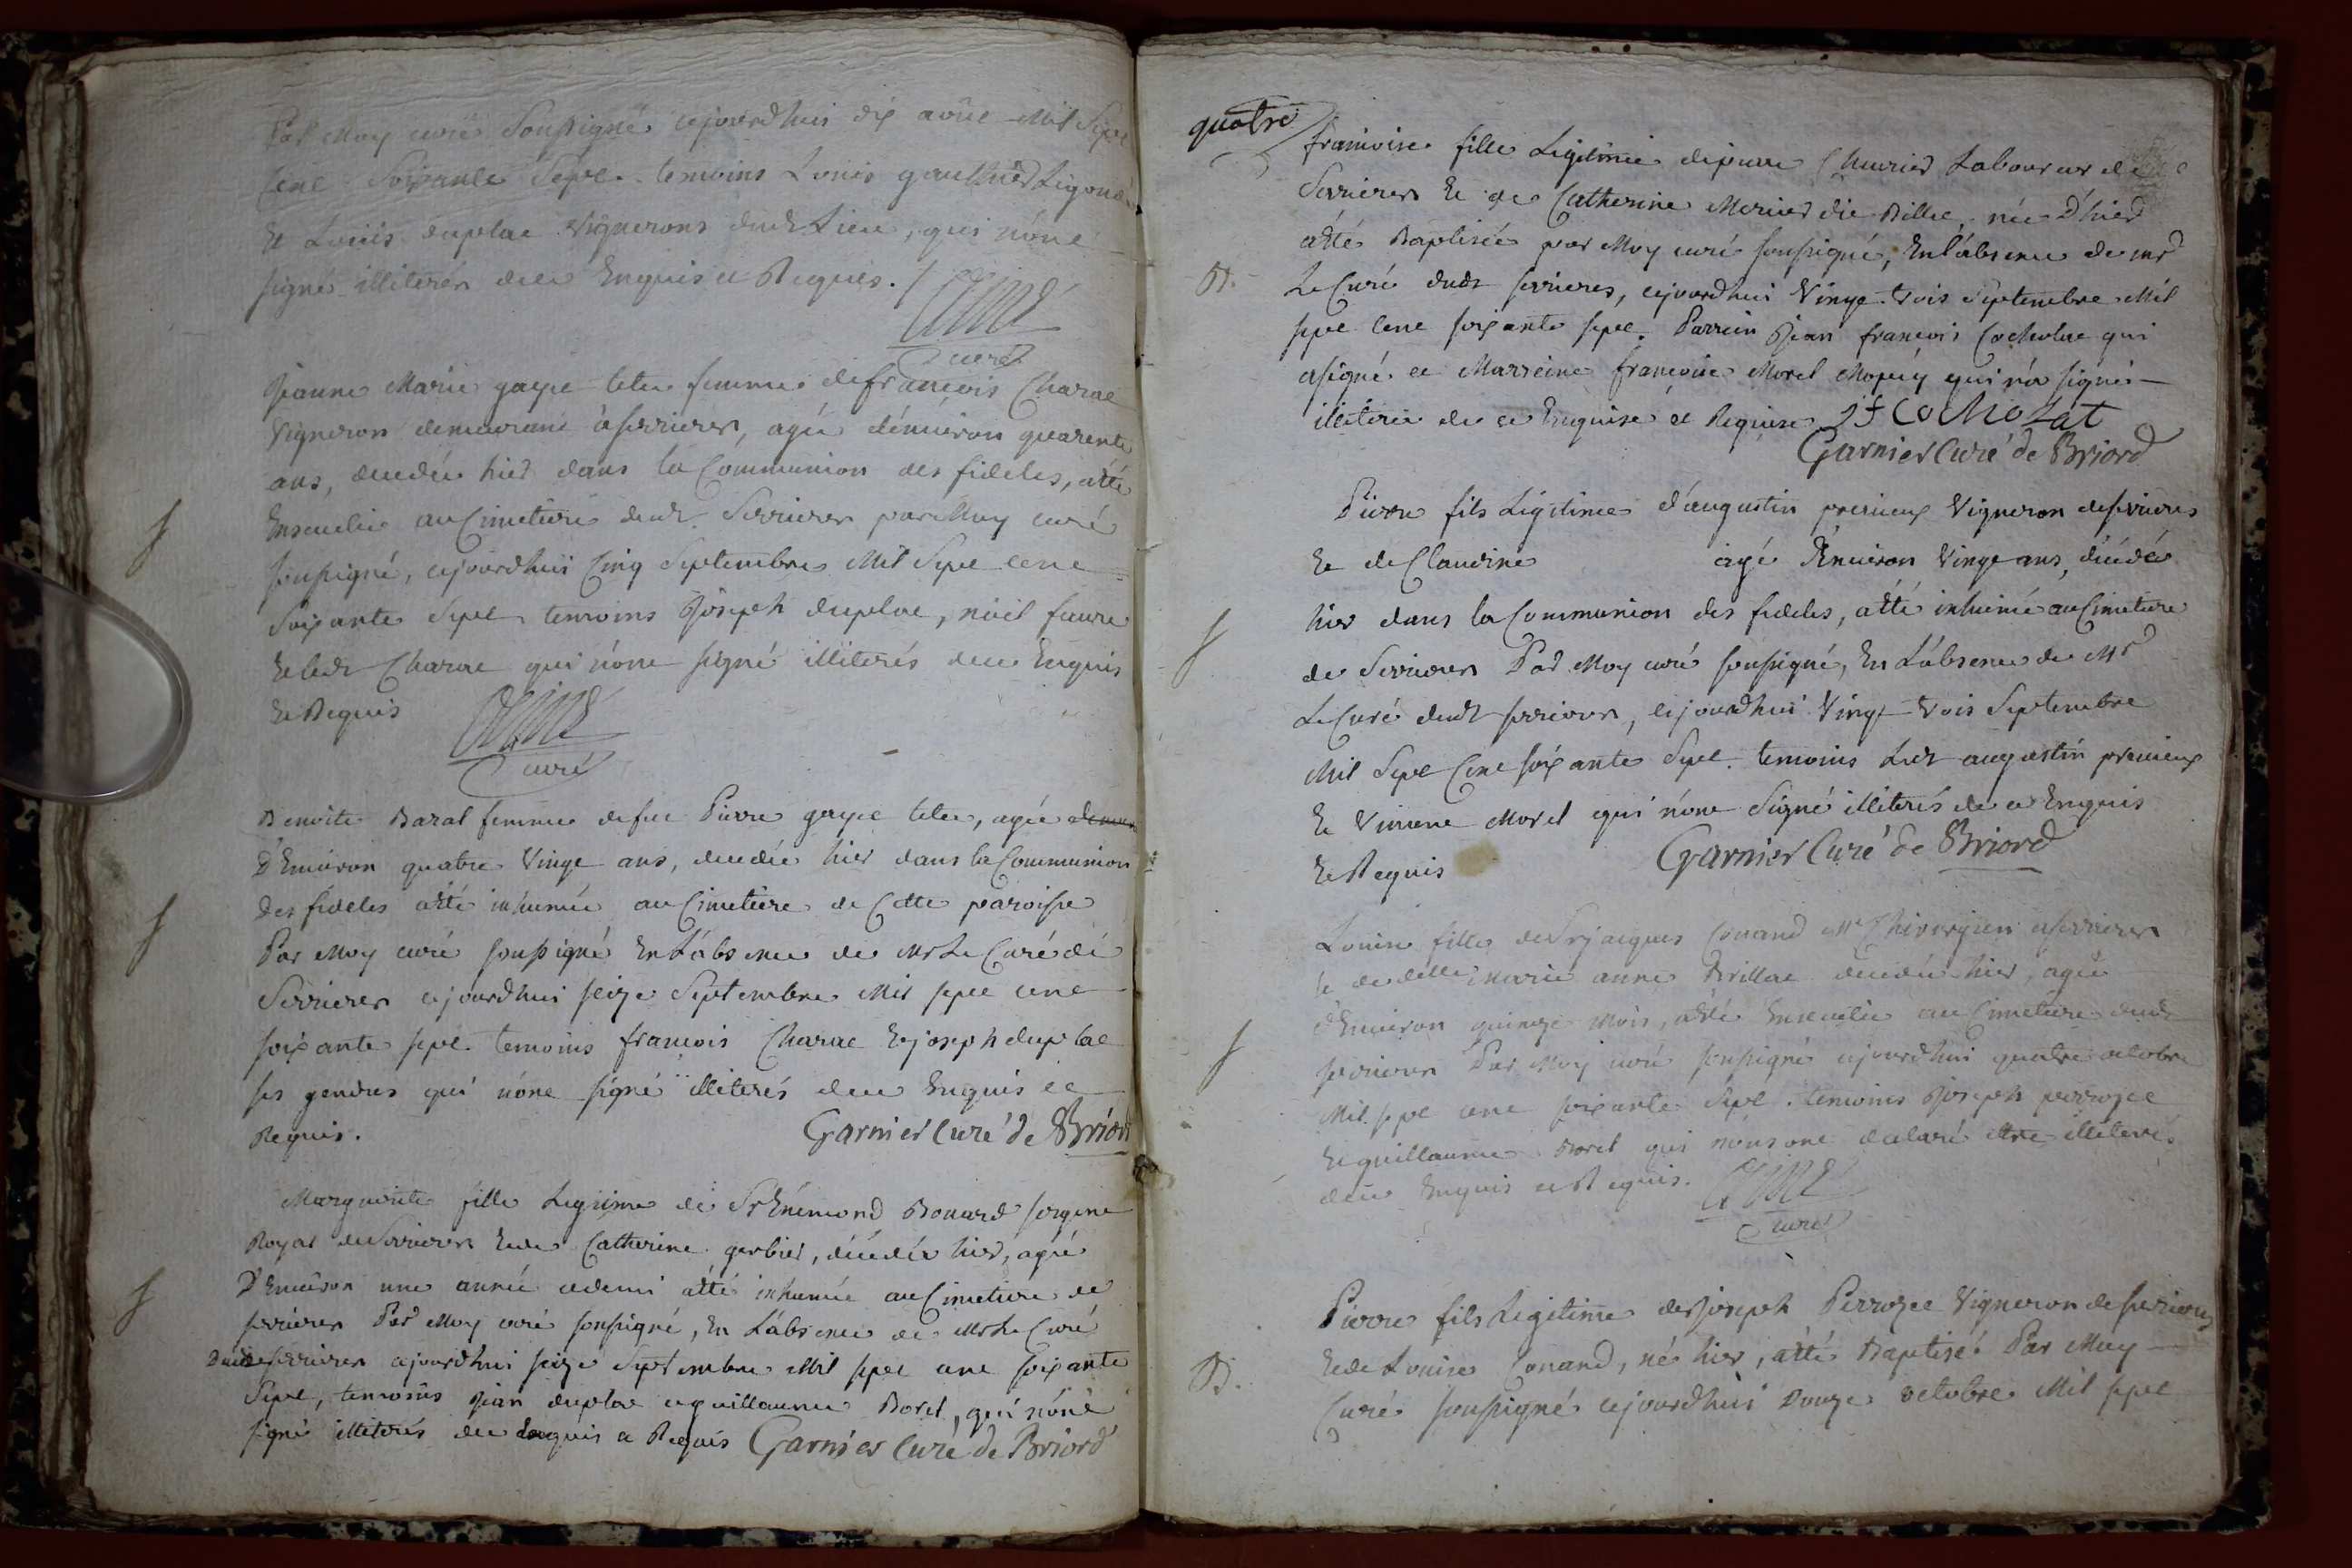 Par Moy curé Soussigné cejourdhui dix août Mil Sept
Cent Soixante Sept. temoins Louis gauthier Ligonet
Et Louis duplat Vignerons dudt Lieu, qui nont
signé illiterés dece Enquis et Requis.
curé
Jeanne Marie gayet tete femme de françois Charat
Vigneron demeurant à serrieres, agée dénviron quarente
ans, decedée hier dans la Communion des fideles, a été
Ensevelie au Cimetiere dudt. Serrieres par Moy curé
soussigné, cejourdhui Cinq Septembre Mil Sept cent
Soixante Sept temoins Joseph duplat, noël faure
et ledt Charat qui nónt signé illiterés dece Enquis
Et Requis
curé
Benoite Barat femme de feu Pierre gayet tete, agée
D'Environ quatre Vingt ans, decedée hier dans la Communion
des fideles a été inhumée au Cimetiere de Cette paroisse
Par Moy curé soussigné En L'absence de Mr Le Curé de
Serrieres cejourdhui seize Septembre Mil sept cent
soixante sept. temoins francois Charat Et joseph duplat
ses gendres qui nónt signé illiterés dece Enquis et
Requis. Garnier Curé de Briord
Marguerite fille Legitime de Sr Enémond Bouard sergent
Royal de Serrieres Et de Catherine gerbier, décédée hier, agée
D'Environ une année et demi a été inhumée au Cimetiere de
serrieres Par Moy curé soussigné, En L'absence de Mr Le Curé
Dudt serrieres cejourdhui seize Septembre Mil sept cent soixante
Sept, temoins Jean duplat et guillaume Boret, qui nónt
signé illiterés dece Enquis et Requis Garnier Curé de Briord
quatre
francoise fille Legitime de pierre Laboureur de
Serrieres Et de Catherine Mercier dit Billiet, née D'hier
a été Baptisée par Moy curé soussigné, En l'absence de mr
B. Le Curé dudt serrieres, cejourdhui Vingt-trois Septembre Mil
sept Cent soixante sept. Parrein Jean francois Cocholat qui
a signé et Marreine francoise Morel qui n'a signé
illiterée de ce Enquise et Requise J f CoChoLat
Garnier Curé de Briord
Pierre fils Légitime d'augustin precieux Vigneron de serrieres
Et de Claudine agé d'Environ Vingt ans, décédé
hier dans la Communion des fideles, a été inhumé au Cimetiere
de Serrieres Par Moy curé soussigné, En L'absence de Mr
Le Curé dudt serrieres, cejourdhui Vingt-trois Septembre
Mil Sept Cent soixante Sept. temoins Ledt augustin precieux
Et Vincent Morel qui nónt Signé illiterés de ce Enquis
Et Requis Garnier Curé de Briord
Louise fille de Sr jacques Conand Me Chirurgien a serrieres
et de delle marie anne Brillat décédée hier, agée
d'Environ quinze Mois, a été Ensevelie au Cimetiere dudt
serrieres Par Moy curé soussigné cejourdhui quatre octobre
Mil sept cent soixante Sept. temoins Joseph perrozet
Et guillaume Boret qui nous ont declaré être illiterés
dece Enquis et Requis.
curé
Pierre fils Legitime de Joseph Perrozet Vigneron de serrieres
B. Et de Louise Conand, né hier, a été Baptisé Par Moy
Curé soussigné cejourdhui Douze octobre Mil sept